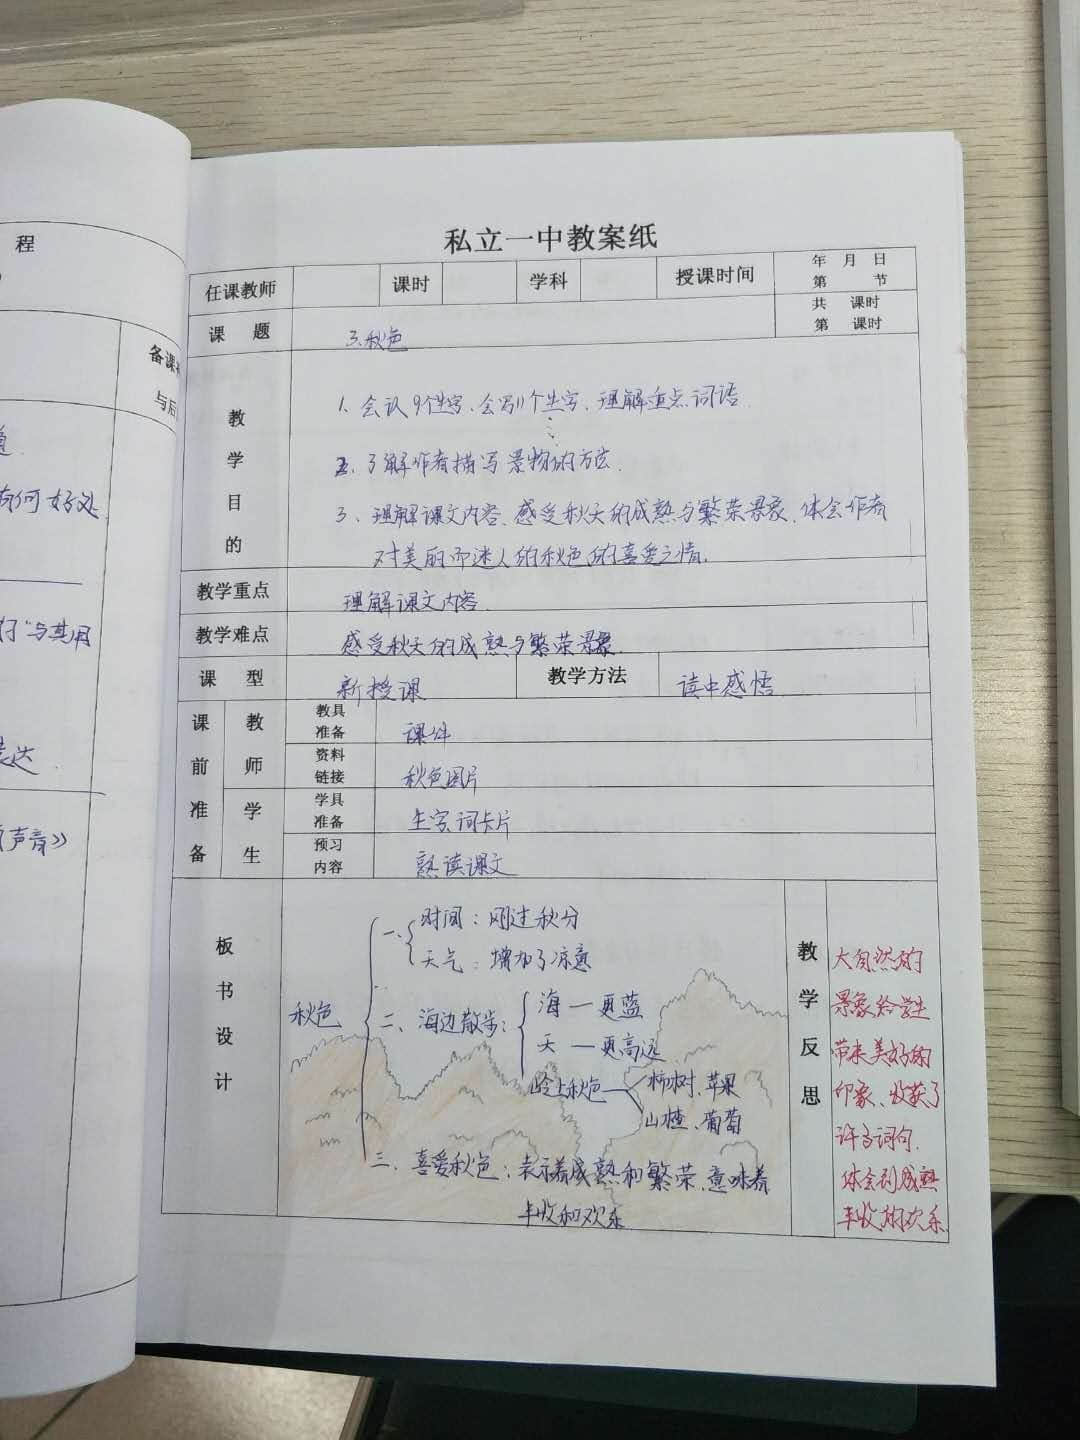 程
备课
与后
有何好处
与其用
表达
声音》
私立一中教案纸
任课教师 课时 学科 授课时间 年 月 日
第 节
课 题 3.秋色 共 课时
第 课时
教学目的
1、会认9个生字、会写11个生字、理解重点词语.
2、了解作者描写景物的方法.
3、理解课文内容、感受秋天的成熟与繁荣景象、体会作者
对美丽而迷人的秋色的喜爱之情.
教学重点 理解课文内容.
教学难点 感受秋天的成熟与繁荣景象.
课 型 新授课 教学方法 读中感悟
课前准备
教师
教具准备 课件
资料链接 秋色图片
学生
学具准备 生字词卡片
预习内容 熟读课文
板书设计
秋色
一、时间：刚过秋分
天气：增加了凉意
二、海边散步：海一更蓝
天一更高远
岭上秋色 柳树、苹果
山楂、葡萄
三、喜爱秋色：表示着成熟和繁荣、意味着
丰收和欢乐
教学反思
大自然的
景象给学生
带来美好的
印象、收获了
许多词句.
体会到成熟
丰收的欢乐.